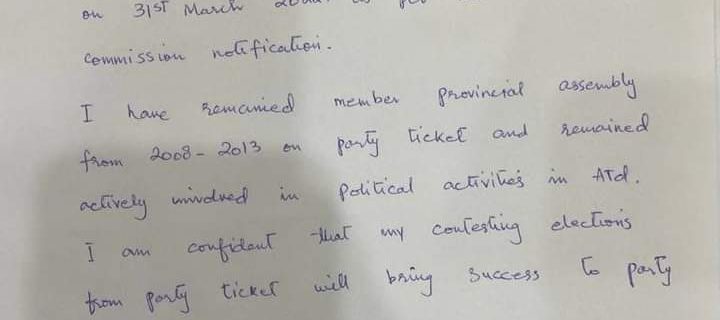 on 31ST March
commission notification.
I have remained member provincial assembly
from 2008-2013 on party ticket and remained
actively involved in political activities in ATd.
I am confident that my contesting elections
from party ticket will bring success to party